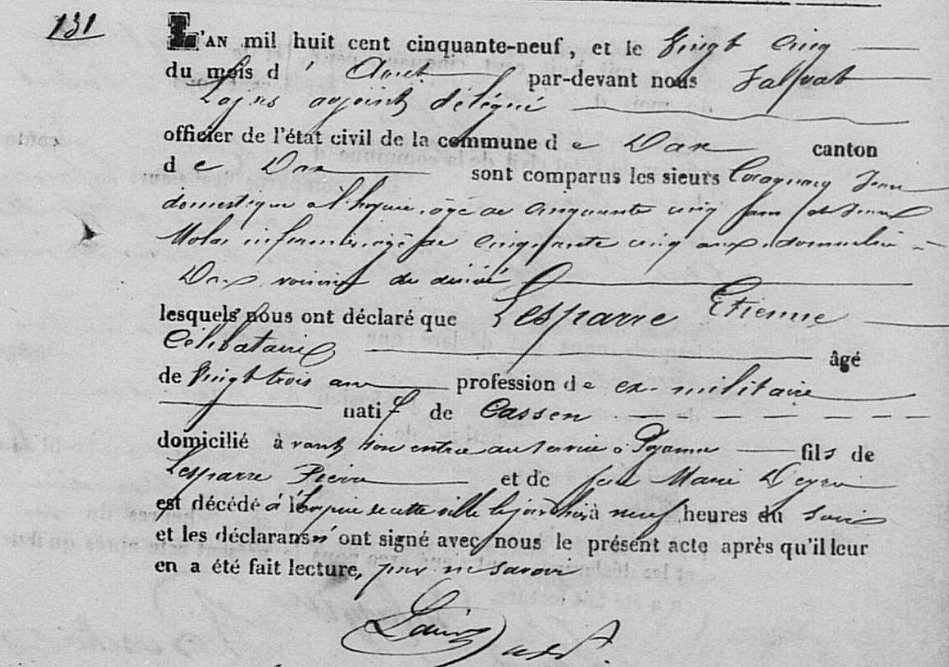 131
L'AN mil huit cent cinquante-neuf, et le Vingt Cinq
du mois d'Août par-devant nous
adjoint délégué
officier de l'état civil de la commune de Dax canton
de Dax sont comparus les sieurs Jean
domestique à l'hospice, âgé de cinquante cinq ans, et Jean
infirmier, âgé de cinquante cinq ans, domiciliés
Dax voisins du décédé
lesquels nous ont déclaré que Lesparre Etienne
Célibataire âgé
de Vingt trois ans profession de ex-militaire
natif de Cassen
domicilié avant son entrée au service à Poyanne fils de
Lesparre Pierre et de feue Marie
est décédé à l'hospice de cette ville le jour d'hier à neuf heures du soir
et les déclarans n'ont signé avec nous le présent acte après qu'il leur
en a été fait lecture, pour ne savoir